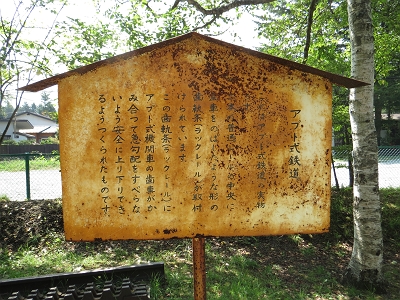 アプト式鉄道
アプト式鉄道の実物
普通レールの中央に
車をのばしたような形の
歯軌条(ラックレール)が取付
けられています。
この歯軌条(ラックレール)に
アプト式機関車の歯車がか
み合って急勾配をすべらな
いよう安全に上り下りでき
るようつくられたものです。